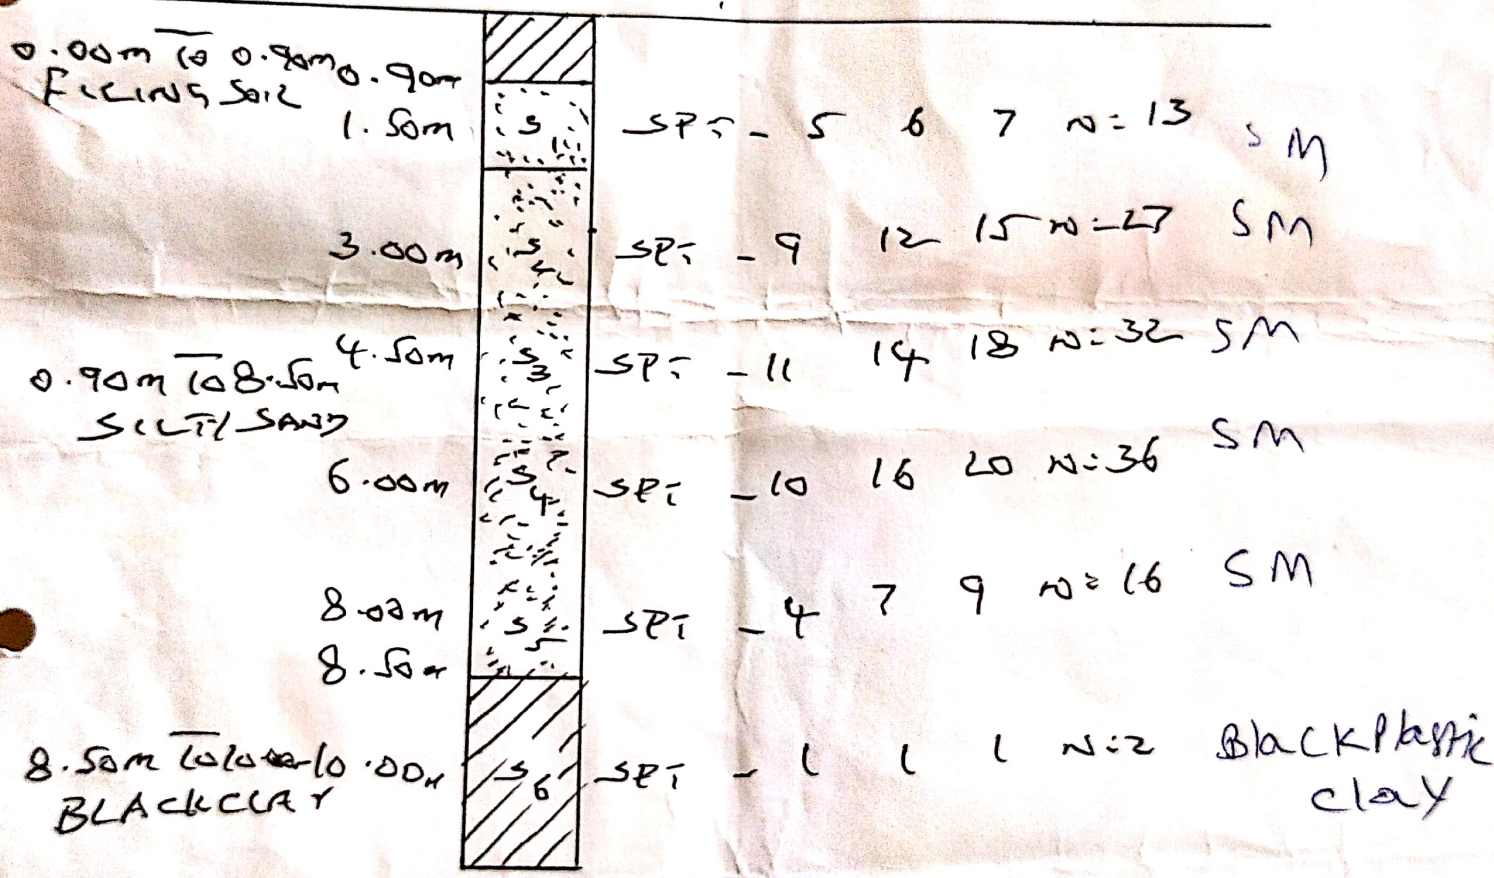 0.00m To 0.90m 0.90m
FILING SOIL
1.50m S1 SPT - 5 6 7 N=13 SM
3.00m S2 SPT - 9 12 15 N=27 SM
4.50m S3 SPT - 11 14 18 N=32 SM
0.90m To 8.50m
SILTY SAND
6.00m S4 SPT - 10 16 20 N=36 SM
8.00m S5 SPT - 4 7 9 N=16 SM
8.50m
8.50m To 10.00m
BLACK CLAY
S6 SPT - 1 1 1 N=2 Black Plastic
clay